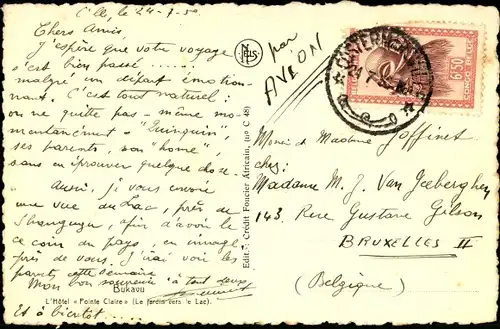 C'lle, le 24-7-50
Chers Amis,
J'espère que votre voyage
s'est bien passé ......
malgré un départ émotion-
nant. C'est tout naturel:
on ne quitte pas - même mo-
mentanément - "Quinquin",
ses parents, son "home"
sans en éprouver quelque chose.
Aussi, je vous envoie
une vue du Lac, près de
Shangugu, afin d'avoir
ce coin du pays, en image,
près de vous. J'irai voir les
parents cette semaine
Mon bon souvenir à tout deux
Bukavu
L'Hôtel « Pointe Claire » (Le jardin vers le Lac).
Et à bientôt ....
NELS
Edit.: Crédit Foncier Africain, (no C 48)
par
AVION
6,50
CONGO BELGE
Monsr et Madame Joffinet
chez:
Madame M. J. Van Iceberghen
143, Rue Gustave Gilson
BRUXELLES II
(Belgique)